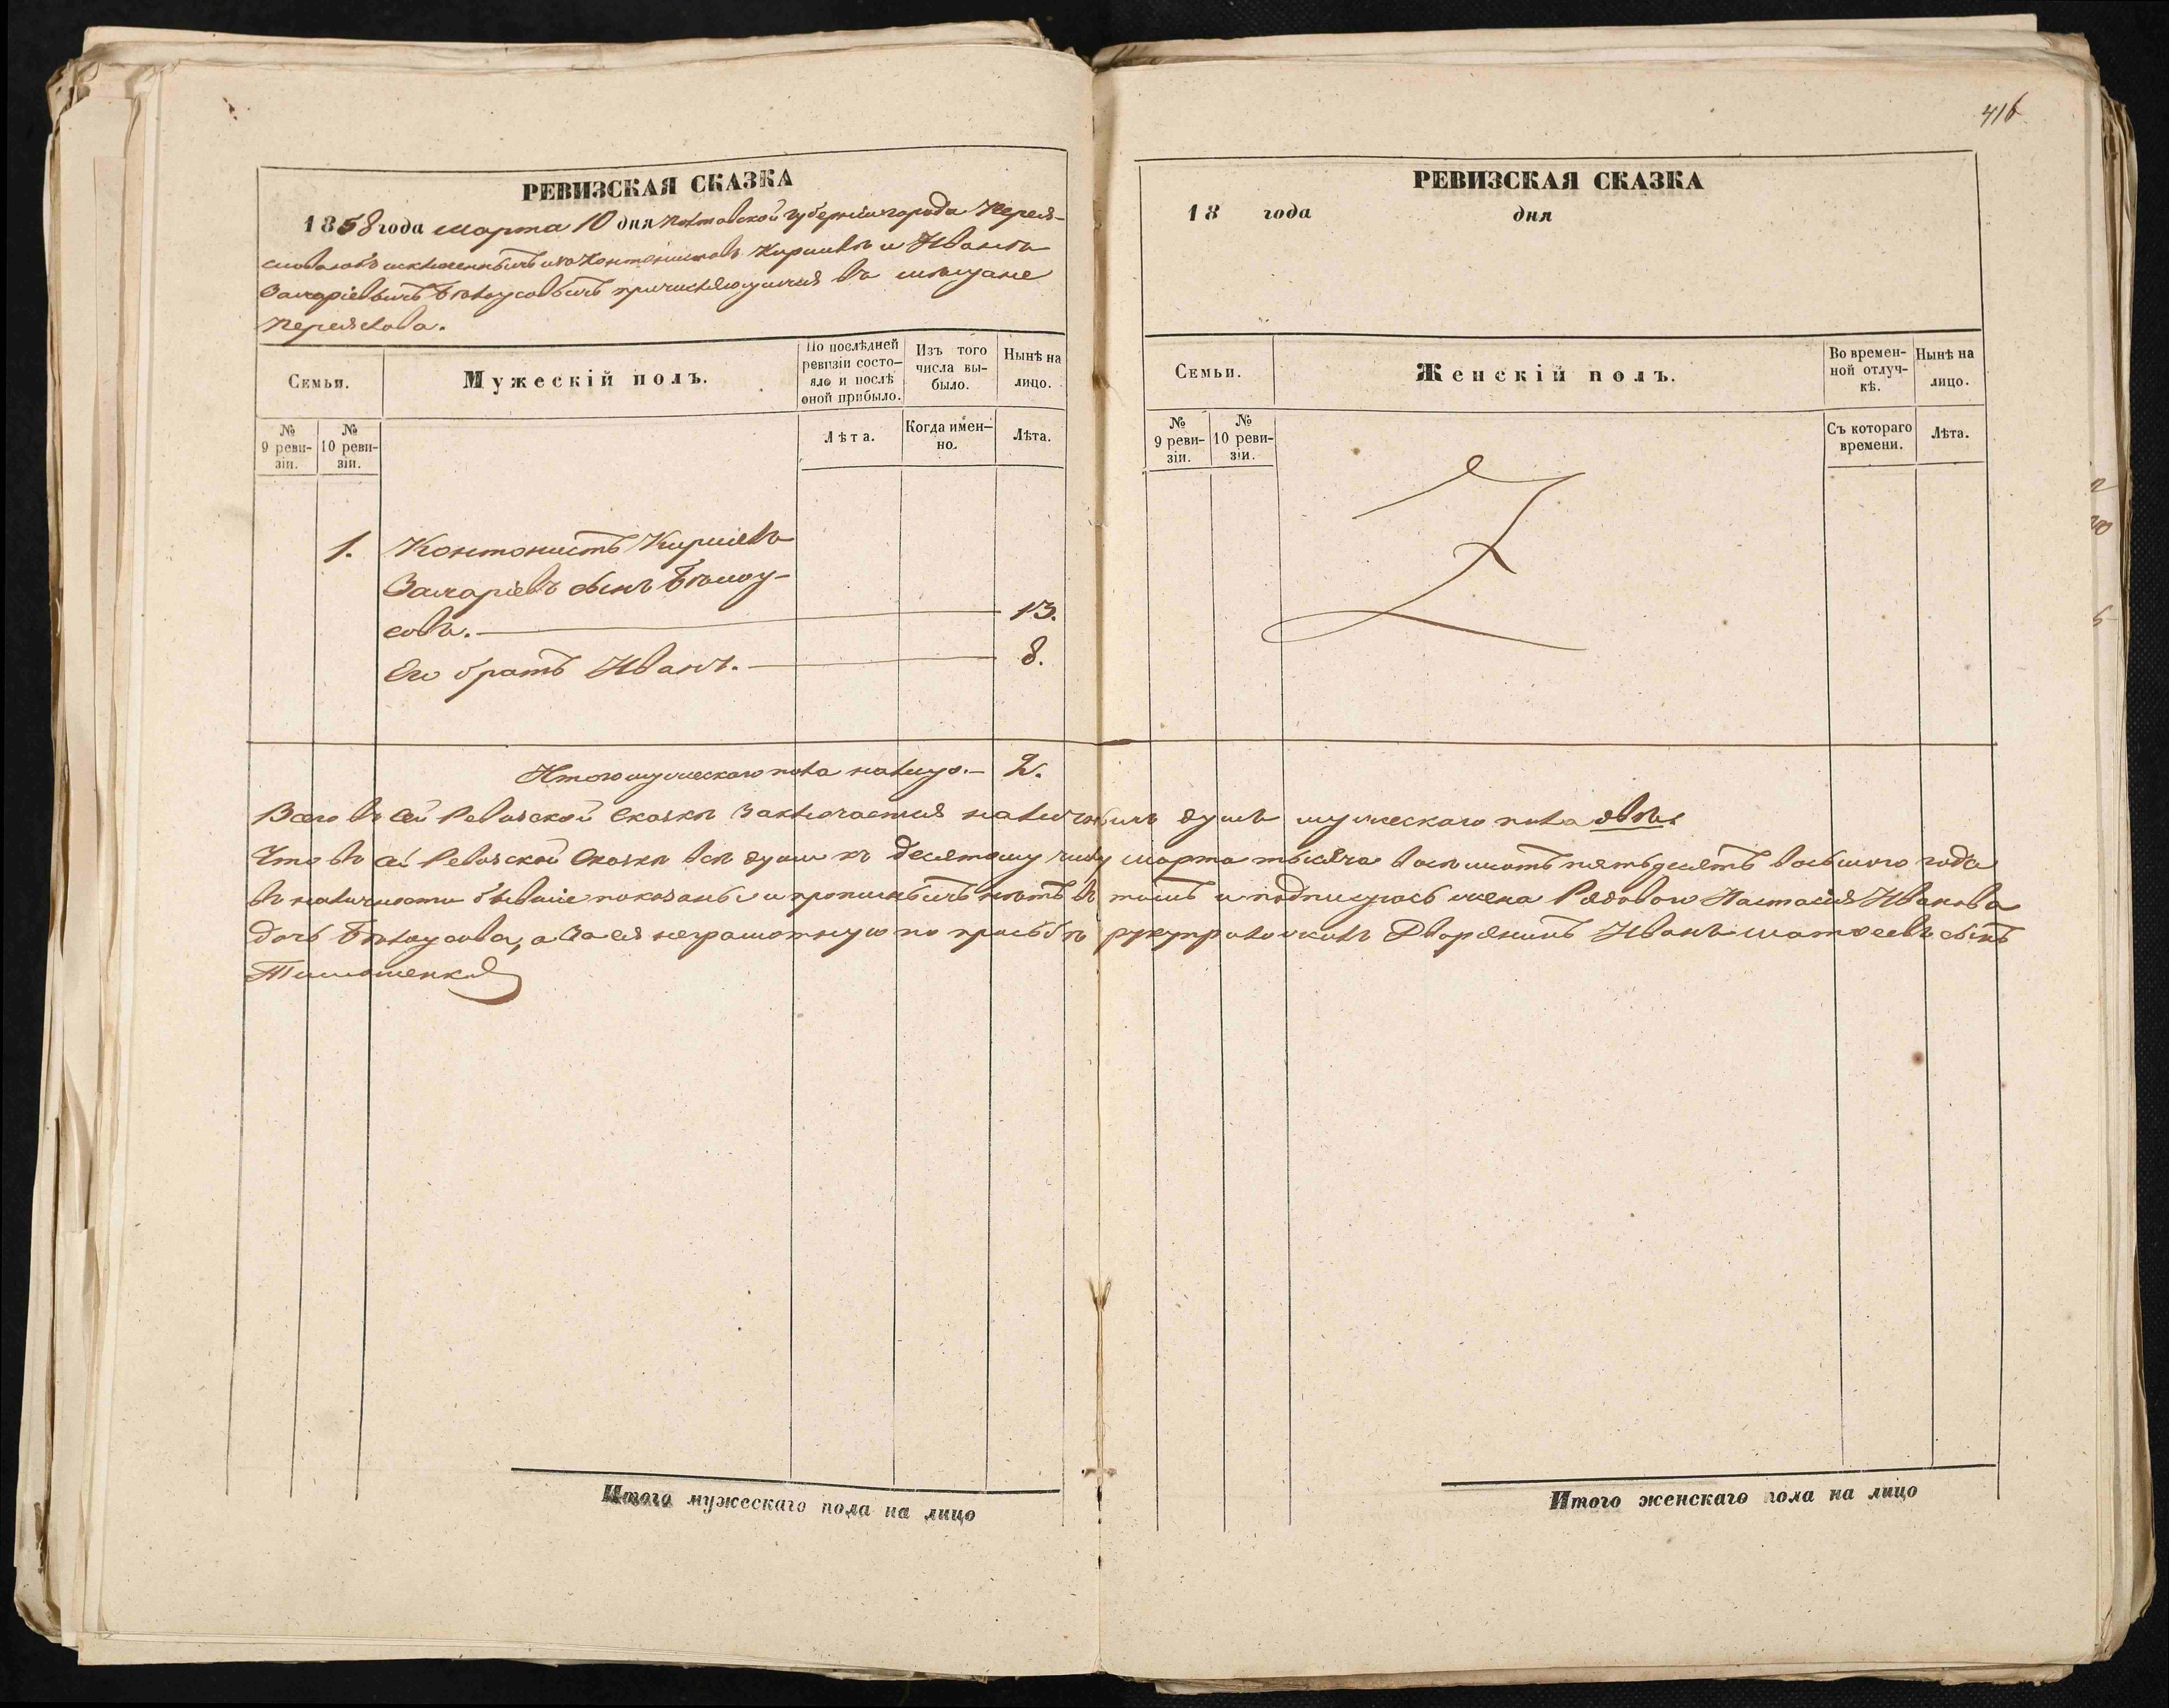 416
РЕВИЗСКАЯ СКАЗКА
1858 года марта 10 дня Полтавской губерніи города Перея-
славля объ исключенныхъ изъ Кантонистовъ Кирилѣ и Иванѣ
Захаріевыхъ Бѣлоусовыхъ причисляющихся въ мѣщане
Переяслова.
Семьи.
Мужескій полъ.
По послѣдней
ревизіи состо-
яло и послѣ
оной прибыло.
Изъ того
числа вы-
было.
Нынѣ на
лицо.
№
9 реви-
зіи.
№
10 реви-
зіи.
Лѣта.
Когда имен-
но.
Лѣта.
1. Контонистъ Кирилъ
Захаріевъ сынъ Бѣлоу-
совъ. 13.
Его братъ Иванъ. 8.
Итого мужескаго пола налицо. 2.
Всего въ сей Ревизской Сказкѣ заключается наличныхъ душъ мужескаго пола двѣ.
Что въ сей Ревизской Сказкѣ всѣ души къ десятому числу марта тысяча восемсотъ пятьдесятъ восьмого года
въ наличности бывшіе показаны и прописныхъ нѣтъ въ томъ и подписуюсь жена Рядового Настасія Иванова
дочь Бѣлоусова, а за ея неграмотную по прозьбѣ руку приложилъ Дворянинъ Иванъ Матвеевъ сынъ
Тимошенко
Итого мужескаго пола на лицо
РЕВИЗСКАЯ СКАЗКА
18 года дня
Семьи.
Женскій полъ.
Во времен-
ной отлуч-
кѣ.
Нынѣ на
лицо.
№
9 реви-
зіи.
№
10 реви-
зіи.
Съ котораго
времени.
Лѣта.
Итого женскаго пола на лицо